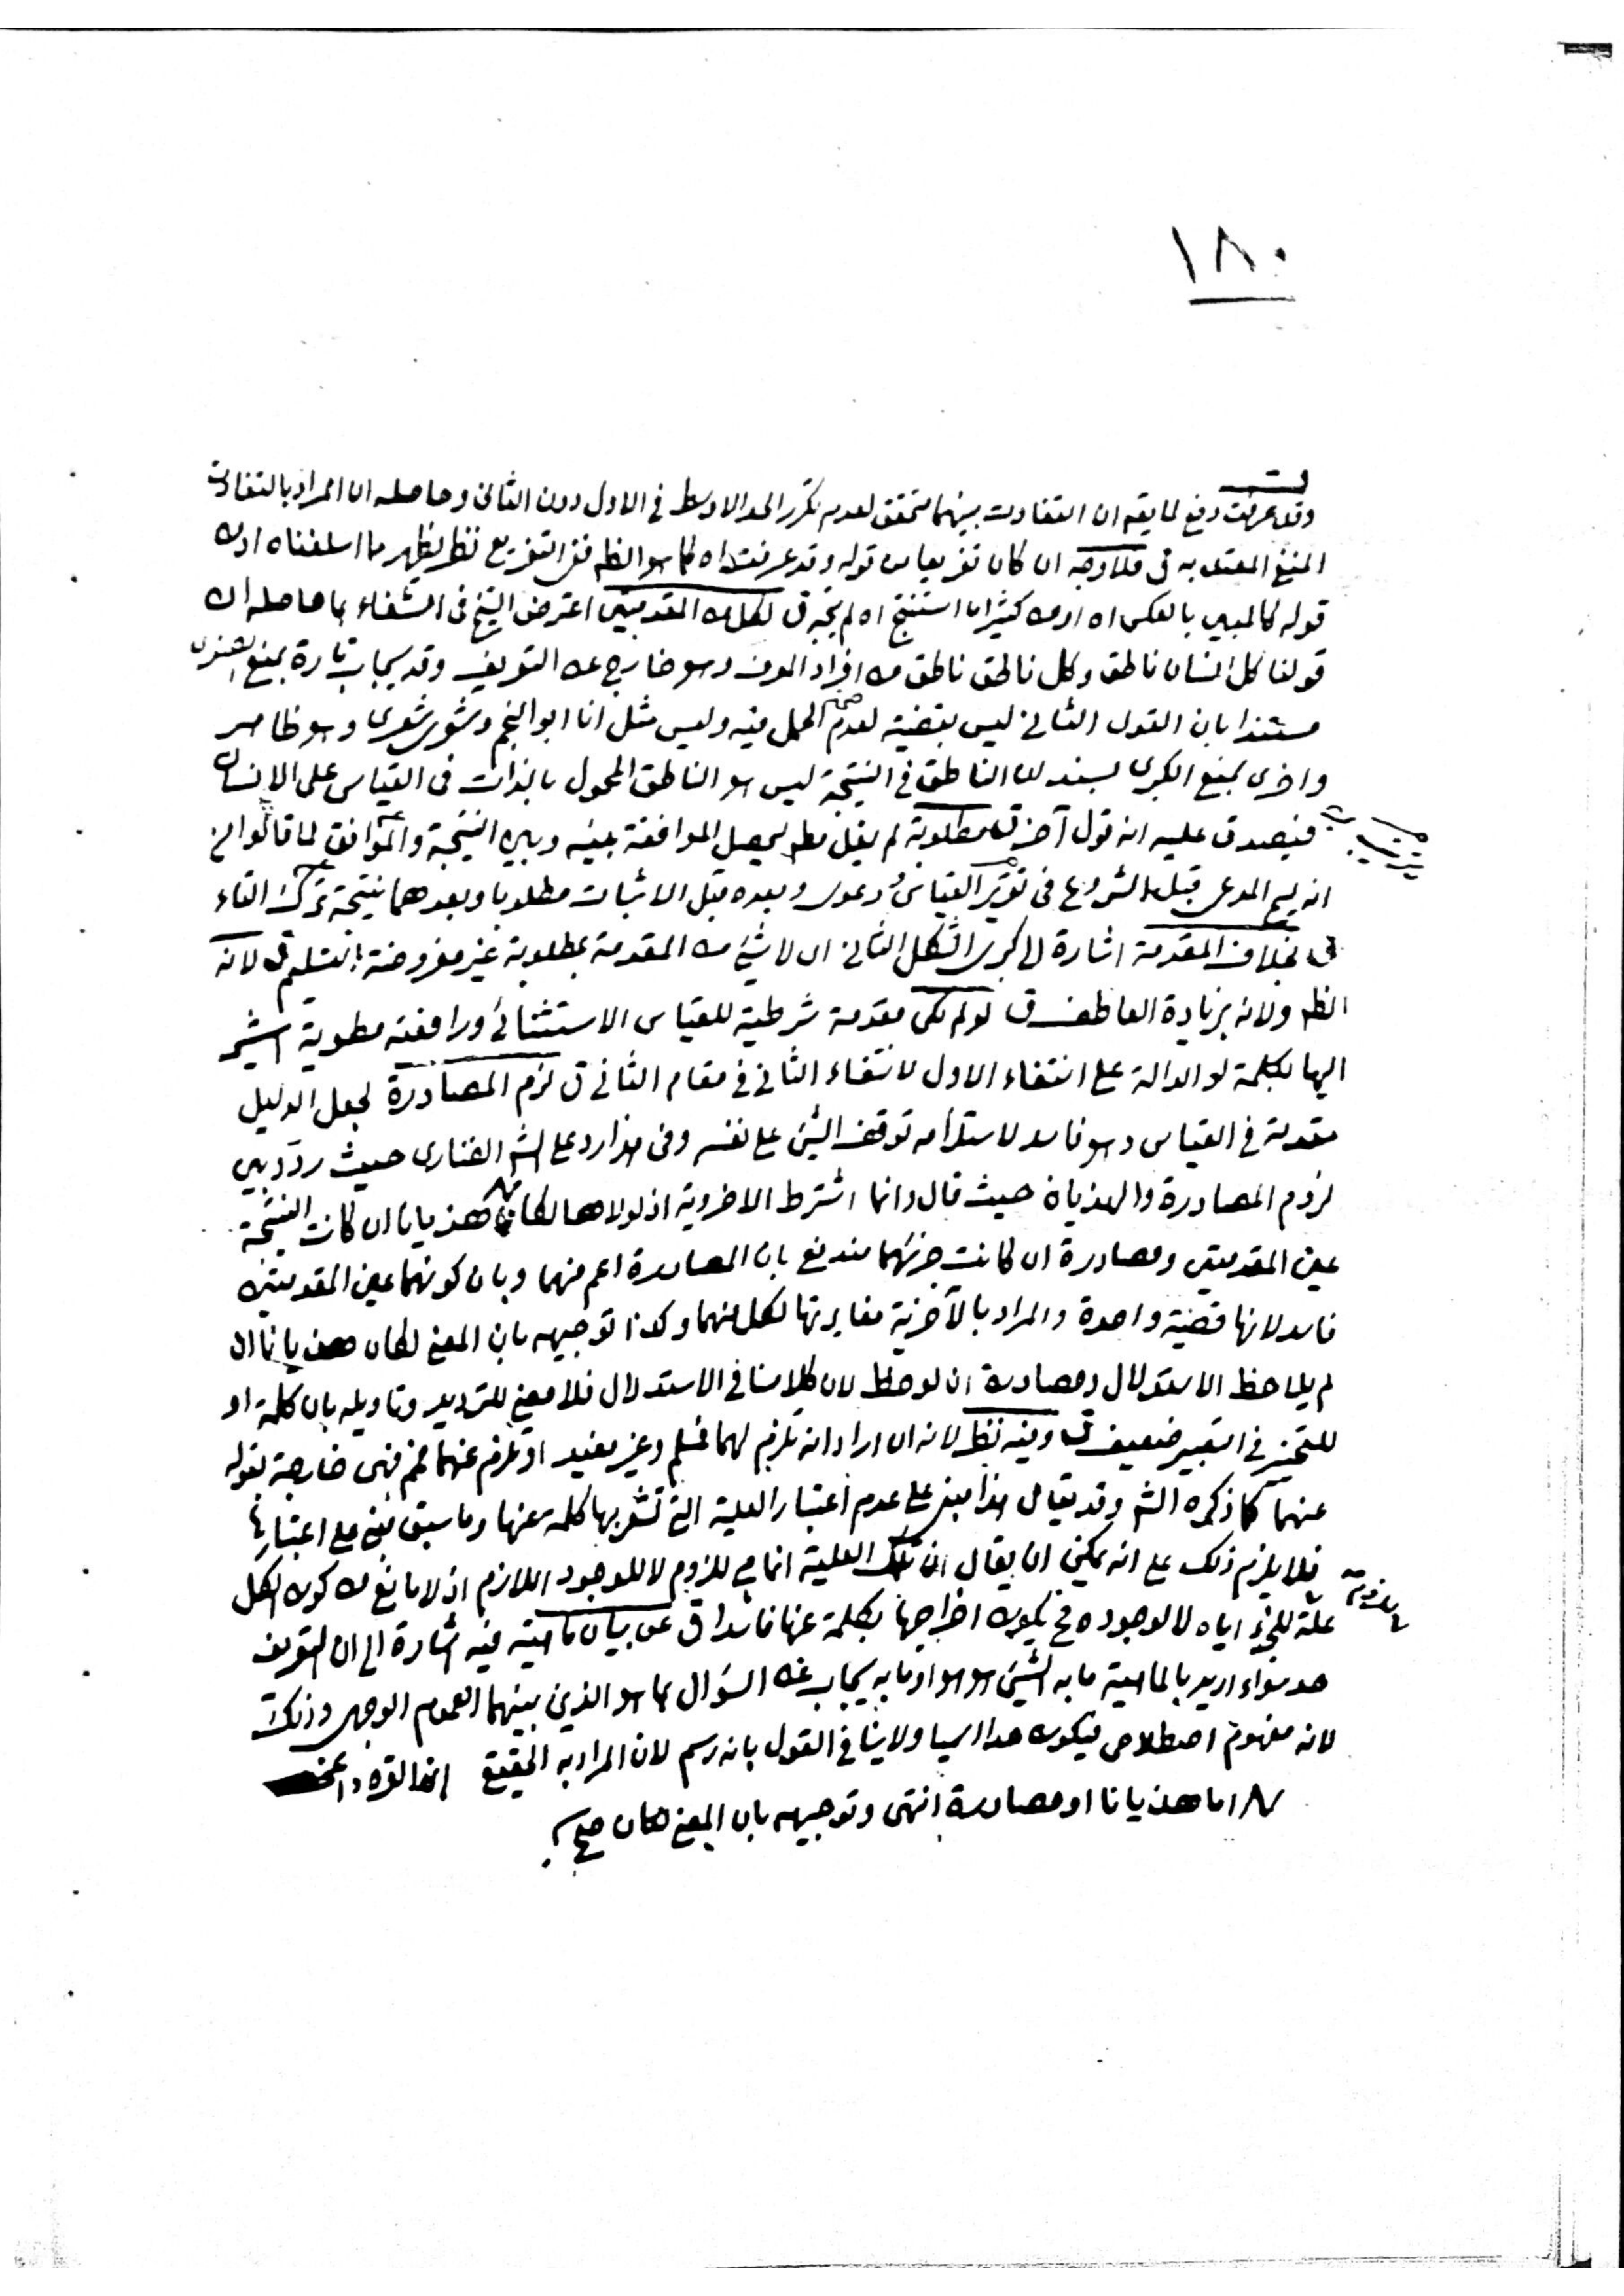 ١٨٠
وقد عرفت دفع لما يقه ان التفاوت بينهما متحقق لعدم تكرر الحد الاوسط فى الاول دون الثانى وحاصله ان المراد بالتفاوت
المنفى المعتد به ق فلا وجه ان كان تفريعا من قوله وقد عرفت اه كما هو الظ ففى التفريع نظر يظهر مما اسلفناه اول
قوله كالمبين بالعكس اه او من كثيرا ما استنتج اه لم يتجه ق لكل من المقدمتين اعترض الشيخ فى الشفاء بما حاصله ان
قولنا كل انسان ناطق وكل ناطق ناطق من افراد المعرف وهو خارج عن التعريف وقد يجاب تارة بمنع الصغرى
مستندا بان القول الثانى ليس بقضية لعدم صحة الحمل فيه وليس مثل انا ابو النجم وشعرى شعرى وهو ظاهر
واخرى بمنع الكبرى بسند ان الناطق فى النتيجة ليس هو الناطق المحمول بالذات فى القياس على الانسان
فيصدق عليه انه قول آخر ق مطلوبة لم يقل مط ليحصل الموافقة بينه وبين النتيجة والموافق لما قالوا من
انه يسمى المدعى قبل الشروع فى تقرير القياس دعوى وبعده قبل الاثبات مطلوبا وبعدهما نتيجة ترك التاء
ق بخلاف المقدمة اشارة الى كبرى الشكل الثانى اى لا شئ من المقدمة بمطلوبة غير مفروضة التسليم ق لانه
الظ ولانه بزيادة العاطف ق لو لم تكن مقدمة شرطية للقياس الاستثنائى ورافعته مطوية اشير
اليها بكلمة لو الدالة على انتفاء الاول لانتفاء الثانى فى مقام الثانى ق لزم المصادرة لجعل الدليل
مقدمة فى القياس وهو فاسد لاستلزامه توقف الشئ على نفسه وفى هذا رد على الش الفنارى حيث ردد بين
لزوم المصادرة والهذيان حيث قال وانما اشترط الاخروية اذ لولاها لكان هذيانا ان كانت النتيجة
عين المقدمتين ومصادرة ان كانت جزئهما مندفع بان المصادرة اعم منهما وبان كونهما عين المقدمتين
فاسد لانها قضية واحدة والمراد بالآخرية مغايرتها لكل منهما وكذا توجيهه بان المعنى لكان هذيانا ان
لم يلاحظ الاستدلال ومصادرة ان لوحظ لان كلامنا فى الاستدلال فلا معنى للترديد وتاويله بان كلمة او
للتخيير فى التعبير ضعيف ق وفيه نظر لانه ان اراد انه تلزم لهما فمسلم وغير مفيد او تلزم عنهما فمم فهى خارجة بقوله
عنهما كما ذكره الش وقد يقال هذا مبنى على عدم اعتبار العلية التى تشعر بها كلمة عنها وما سبق مبنى على اعتبارها
فلا يلزم ذلك على انه يمكن ان يقال ان تلك العلية انما هى للزوم لا للوجود اللازم اذ لا مانع من كون الكل
علة للجزء اياه لا لوجوده فح يكون اخراجها بكلمة عنها فاسدا ق عن بيان ماهيته فيه اشارة الى ان التعريف
حد سواء اريد بالماهية ما به الشئ هو هو او ما به يجاب عن السؤال بما هو الذين بينهما العموم الوجهى وذلك
لانه مفهوم اصطلاحى فيكون حدا اسميا ولا ينافى القول بانه رسم لان المراد به الحقيقى
اما هذيانا او مصادرة انتهى وتوجيهه بان المعنى لكان صح